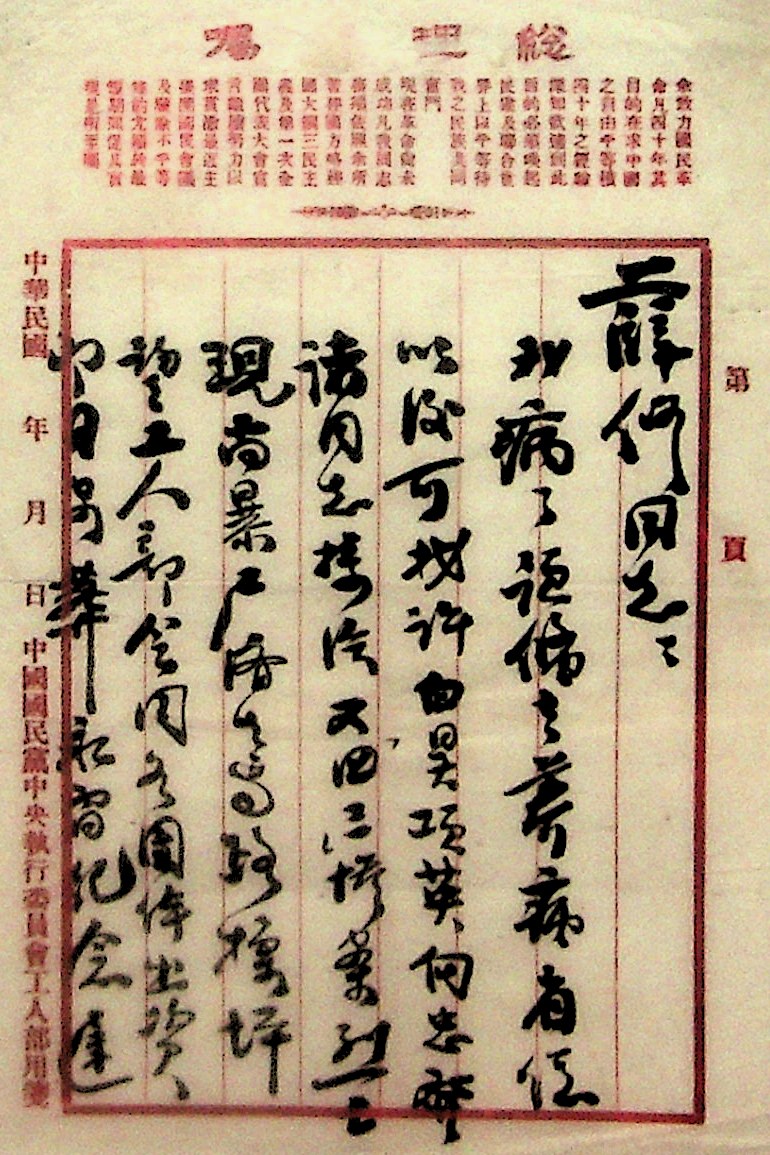 總理
余致力國民革
命凡四十年其
目的在求中國
之自由平等積
四十年之經驗
深知欲達到此
目的必須喚起
民衆及聯合世
界上以平等待
我之民族共同
奮鬥
現在革命尚未
成功凡我同志
務須依照余所
著建國方略建
國大綱三民主
義及第一次全
國代表大會宣
言繼續努力以
求貫徹最近主
張開國民會議
及廢除不平等
條約尤須於最
短期間促其實
現是所至囑
第 頁
薛何同志：
我病了 去養病省
以後可找許白昊項英向忠發
諸同志接洽又四 慘案烈士
現尚暴尸濟生馬路操坪
望工人部会同各團体出資
即日安葬永留紀念建
中華民國 年 月 日 中國國民黨中央執行委員會工人部用箋